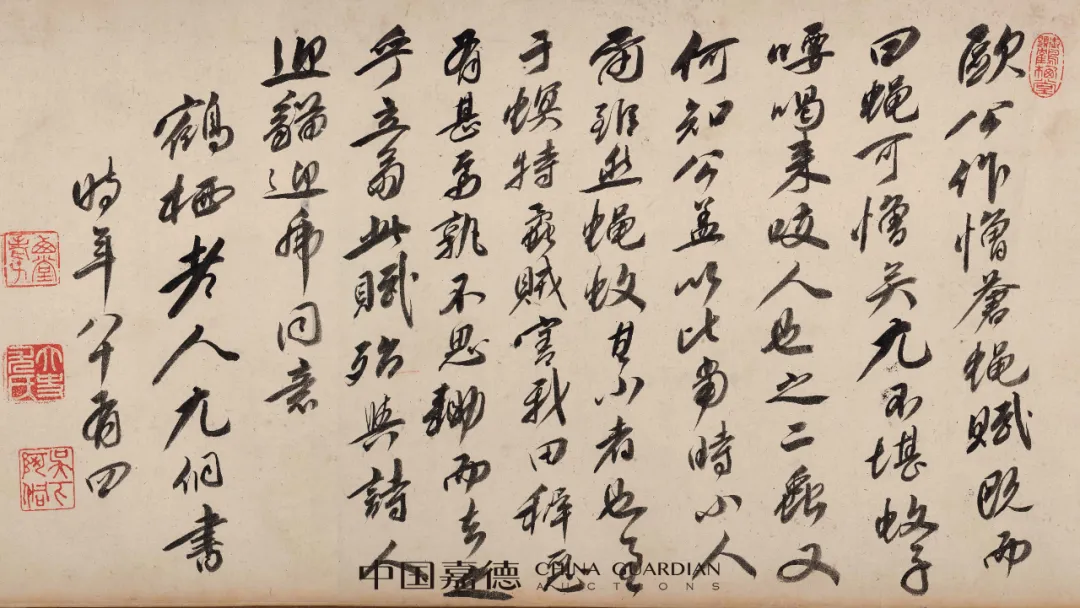 歐公作憎蒼蝇賦既而
曰蝇可憎矣尤不堪蚊子
喓喝来咬人也之二蟲又
何知公盖以比當時小人
爾雖然蝇蚊其小者也至
于螟特蟊賊害我田穉
有甚焉孰不思鋤而去之
乎立此賦殆與詩人
迎貓迎虎同意
鶴栖老人尤侗書
時年八十有四
鶴栖堂
吴下阿侗
中国嘉德 CHINA GUARDIAN
AUCTIONS